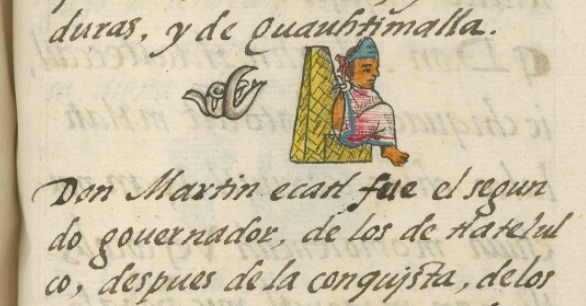 duras, y de Quauhtimalla.
Don Martin ecatl fue el segun
do gouernador, de los de tlatelul
co, despues de la conquista, de los